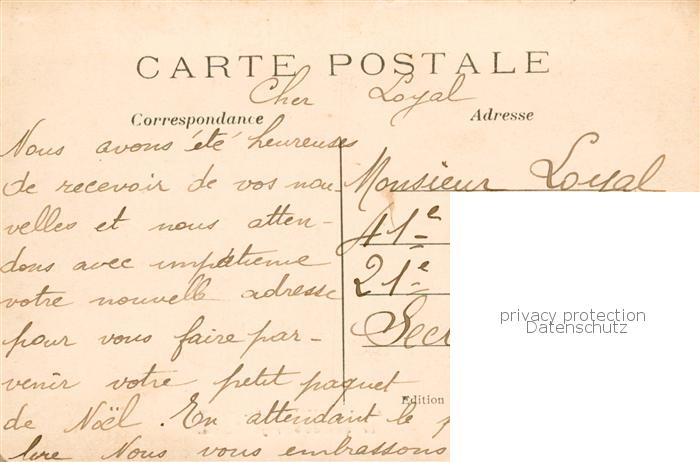 CARTE POSTALE
Cher Loyal
Correspondance Adresse
Nous avons été heureuses
de recevoir de vos nou-
velles et nous atten-
dons avec impatience
votre nouvelle adresse
pour vous faire par-
venir votre petit paquet
de Noël. En attendant le
lire Nous vous embrassons
Monsieur Loyal
41e
21e
Sect
Edition
privacy protection
Datenschutz